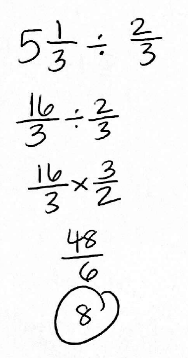 5 1/3 ÷ 2/3
16/3 ÷ 2/3
16/3 × 3/2
48/6
8